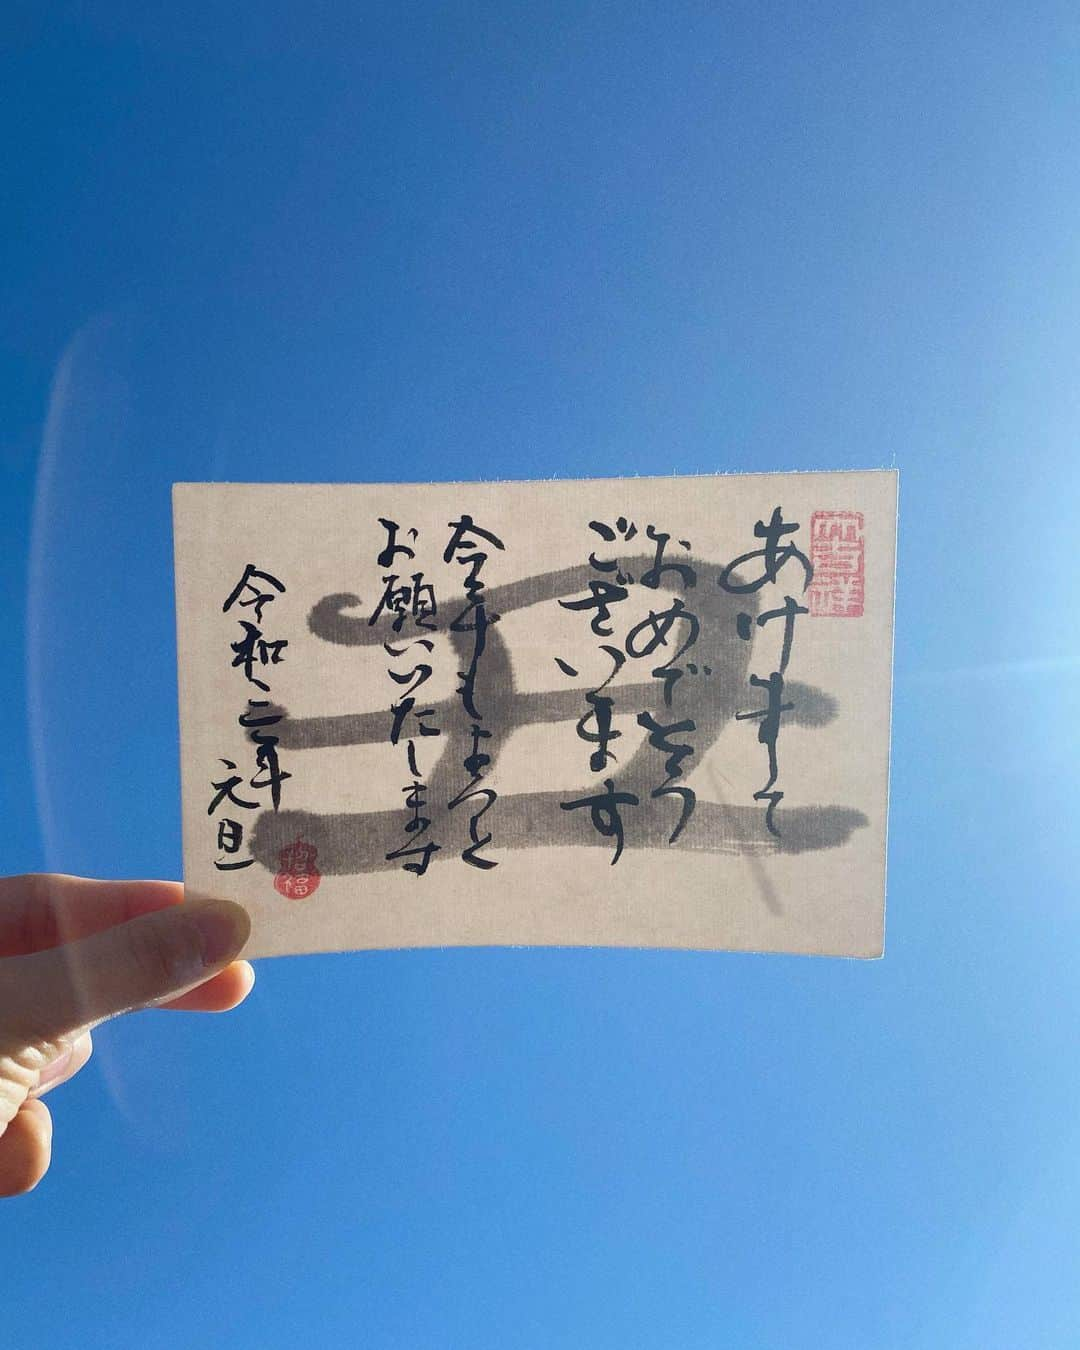 あけまして
おめでとう
ございます
今年もよろしく
お願いいたします
令和三年
元旦
招福
丑